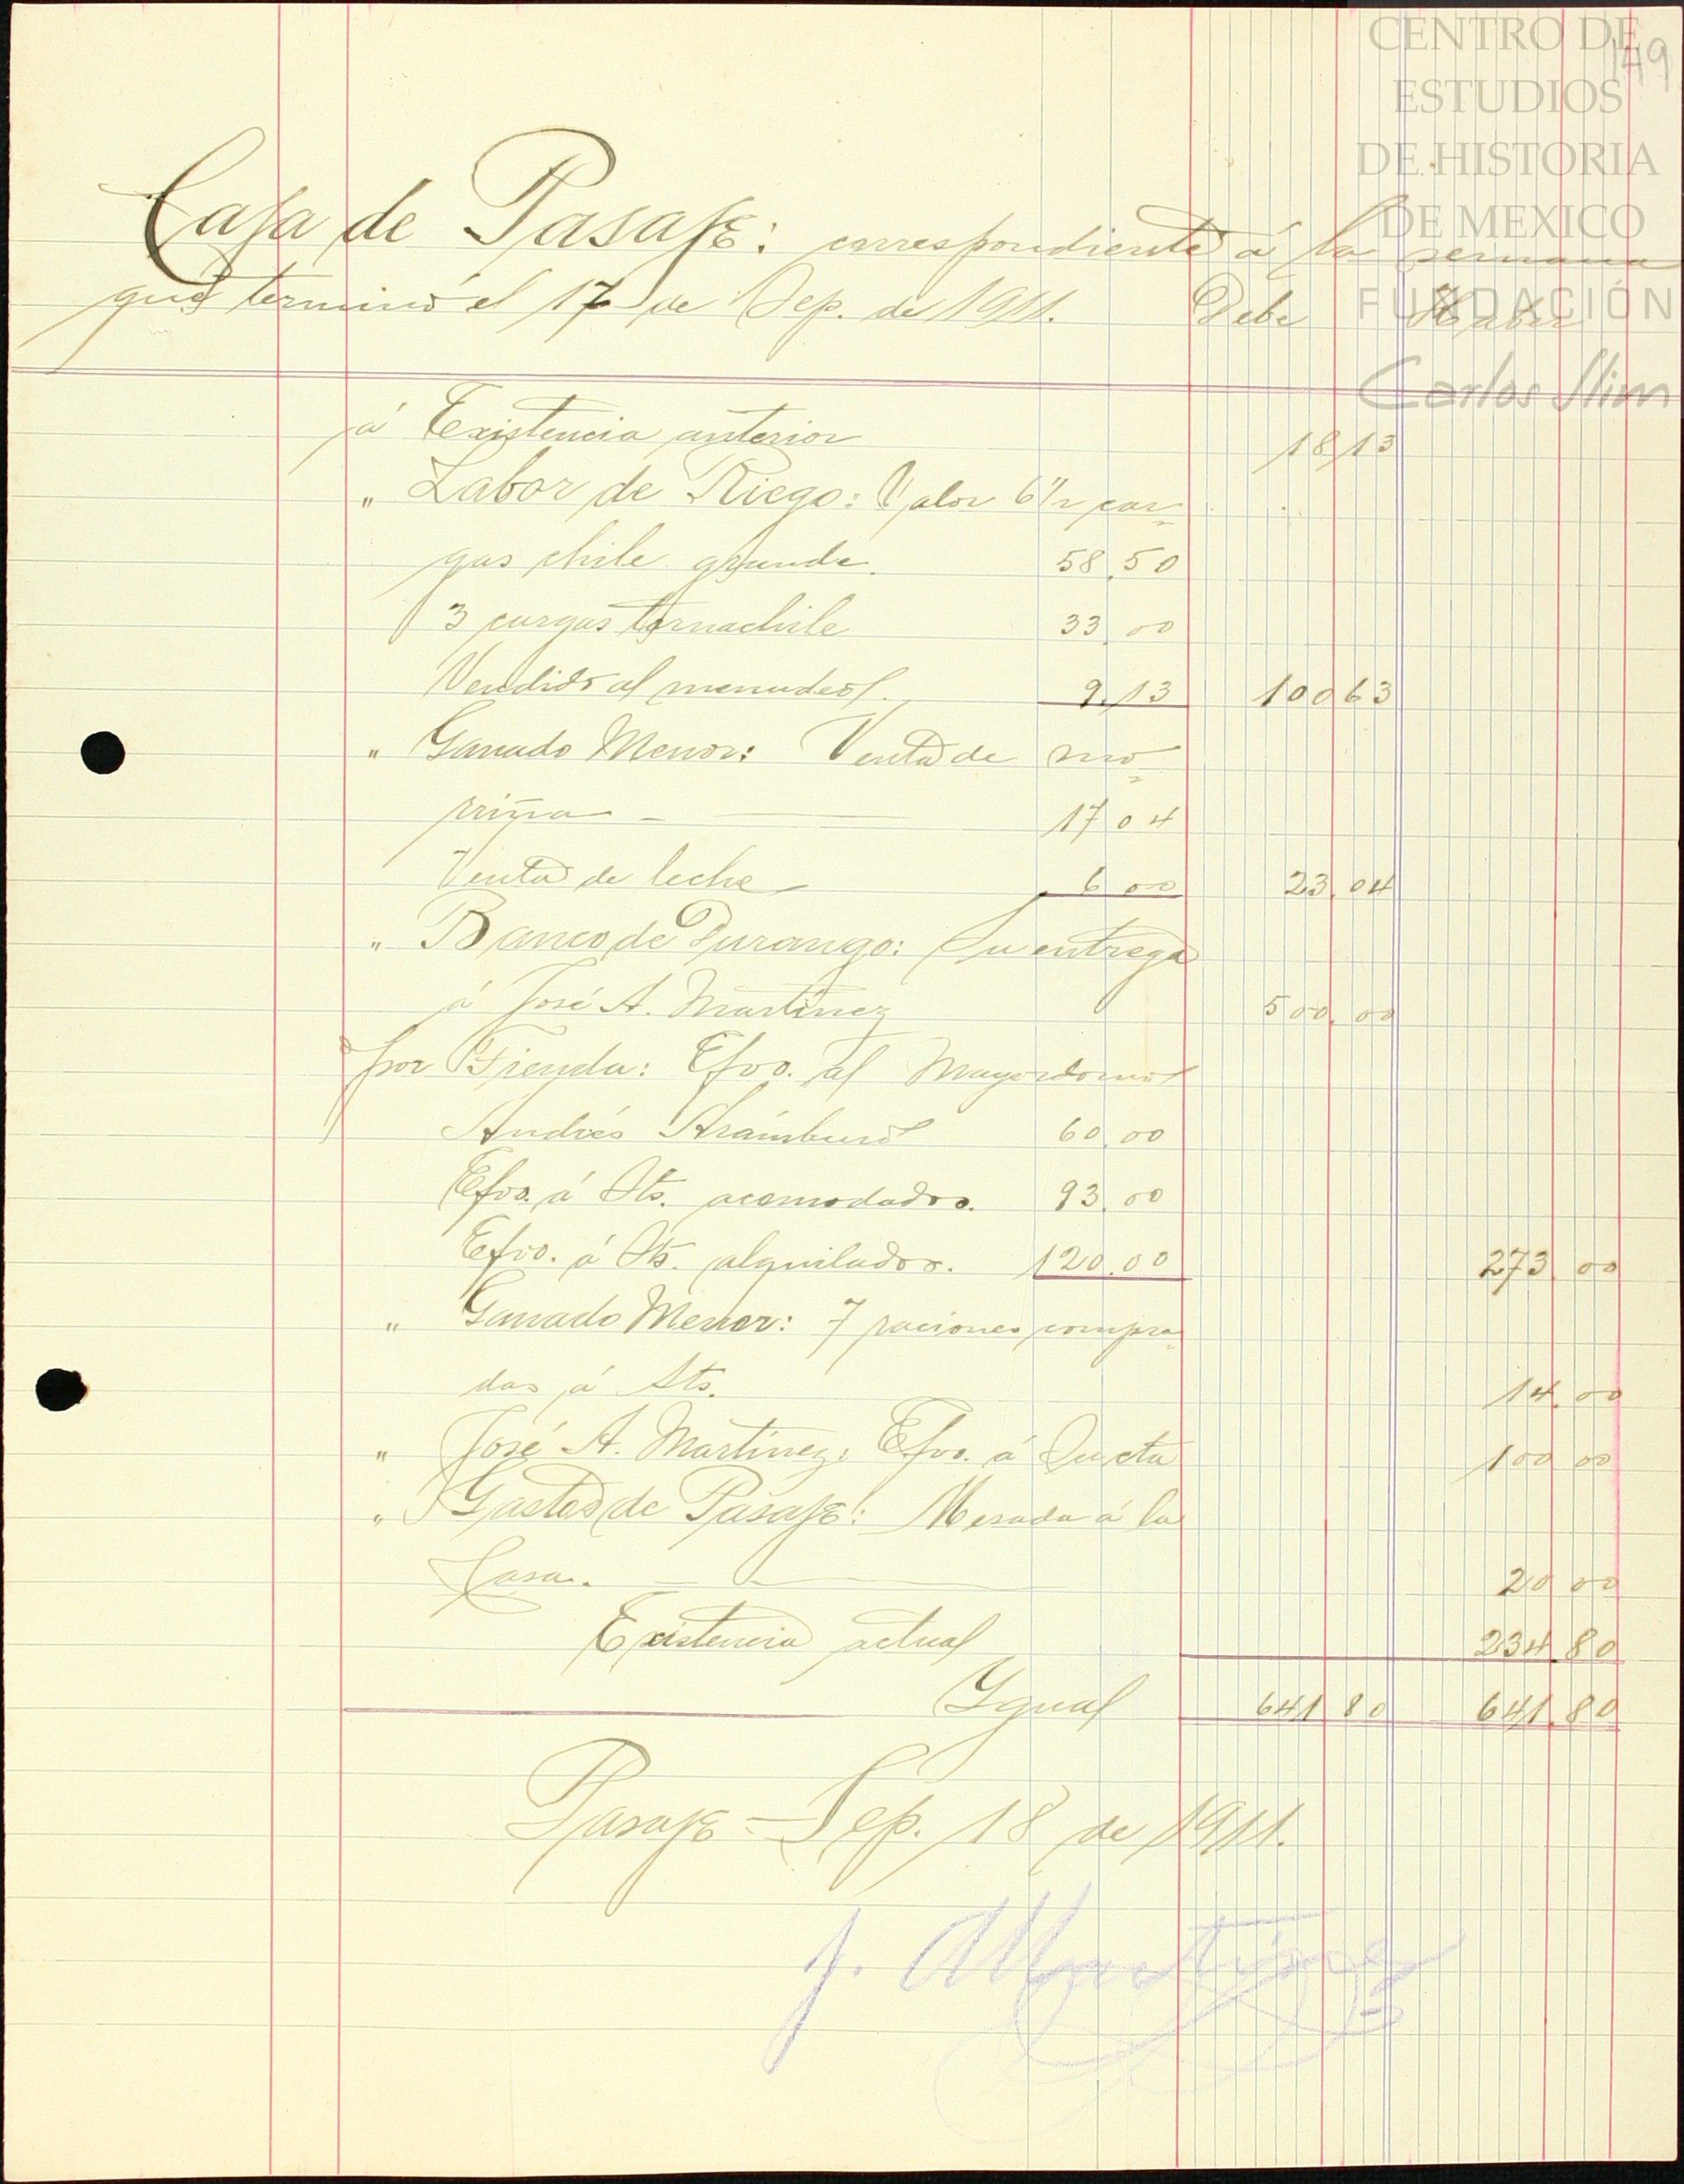 CENTRO DE
ESTUDIOS
DE HISTORIA
DE MEXICO
FUNDACIÓN
Carlos Slim
149
Caja de Pasaje: correspondiente á la semana
que terminó el 17 de Sep. de 1911. Debe Haber
á Existencia anterior 18 13
" Labor de Riego: Valor 6 1/2 car=
gas chile grande. 58.50
3 cargas tornachile 33.00
Vendido al menudeo. 9.13 100 63
" Ganado Menor: Venta de mo=
rriña 17 04
Venta de leche 6 00 23.04
" Banco de Durango: Su entrega
á José A. Martínez 500.00
por Tienda: Efvo. al Mayordomo
Andrés Arámburo 60.00
Efvo. á Sts. acomodados. 93.00
Efvo. á Sts. alquilados. 120.00 273.00
" Ganado Menor: 7 raciones compra=
das á Sts. 14.00
" José A. Martínez: Efvo. á Su cta 100 00
" Gastos de Pasaje: Mesada á la
Casa. 20 00
Existencia actual 234.80
Ygual 641 80 641.80
Pasaje - Sep. 18 de 1911.
J. A Martínez